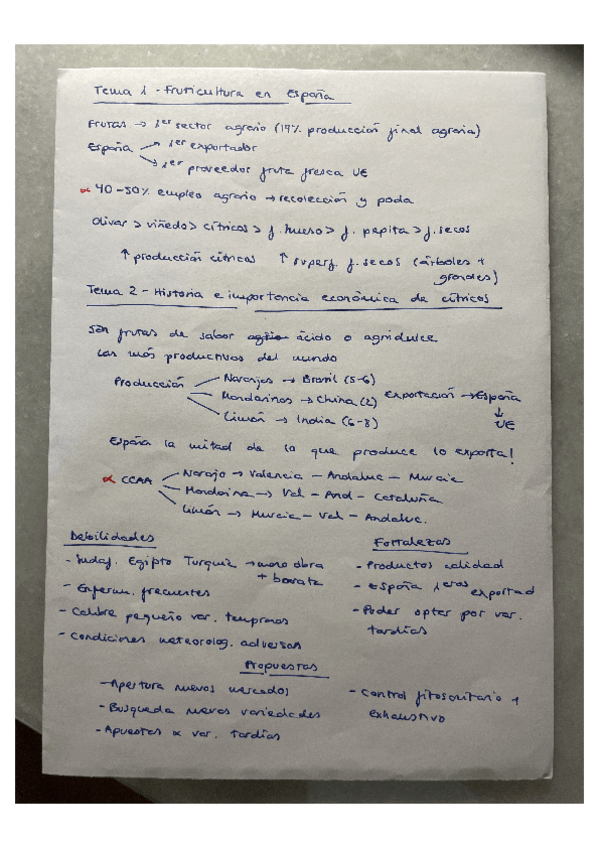 Tema 1 - Fruticultura en España
Frutas → 1er sector agrario (19% producción final agraria)
España → 1er exportador
→ 1er proveedor fruta fresca UE
* 40-50% empleo agrario → recolección y poda
Olivar > viñedo > cítricos > f. hueso > f. pepita > f. secos
↑ producción cítricos ↑ superf. f. secos (árboles + grandes)
Tema 2 - Historia e importancia económica de cítricos
Son frutas de sabor ácido o agridulce
Las más productivos del mundo
Producción
Naranjas → Brasil (5-6)
Mandarinas → China (2)
Limón → India (6-8)
Exportación → España
↓
UE
España la mitad de lo que produce lo exporta!
* CCAA
Naranja → Valencia - Andaluc - Murcia
Mandarina → Val - And - Cataluña
Limón → Murcia - Val - Andaluc.
Debilidades
- Sudaf. Egipto Turquía → mano obra
+ barata
- Enferm. frecuentes
- Calibre pequeño var. tempranas
- Condiciones meteorolog. adversas
Fortalezas
- Productos calidad
- España 1eros exportad
- Poder optar por var.
tardías
Propuestas
- Apertura nuevos mercados
- Busqueda nuevas variedades
- Apuestas x var. tardías
- Control fitosanitario +
exhaustivo